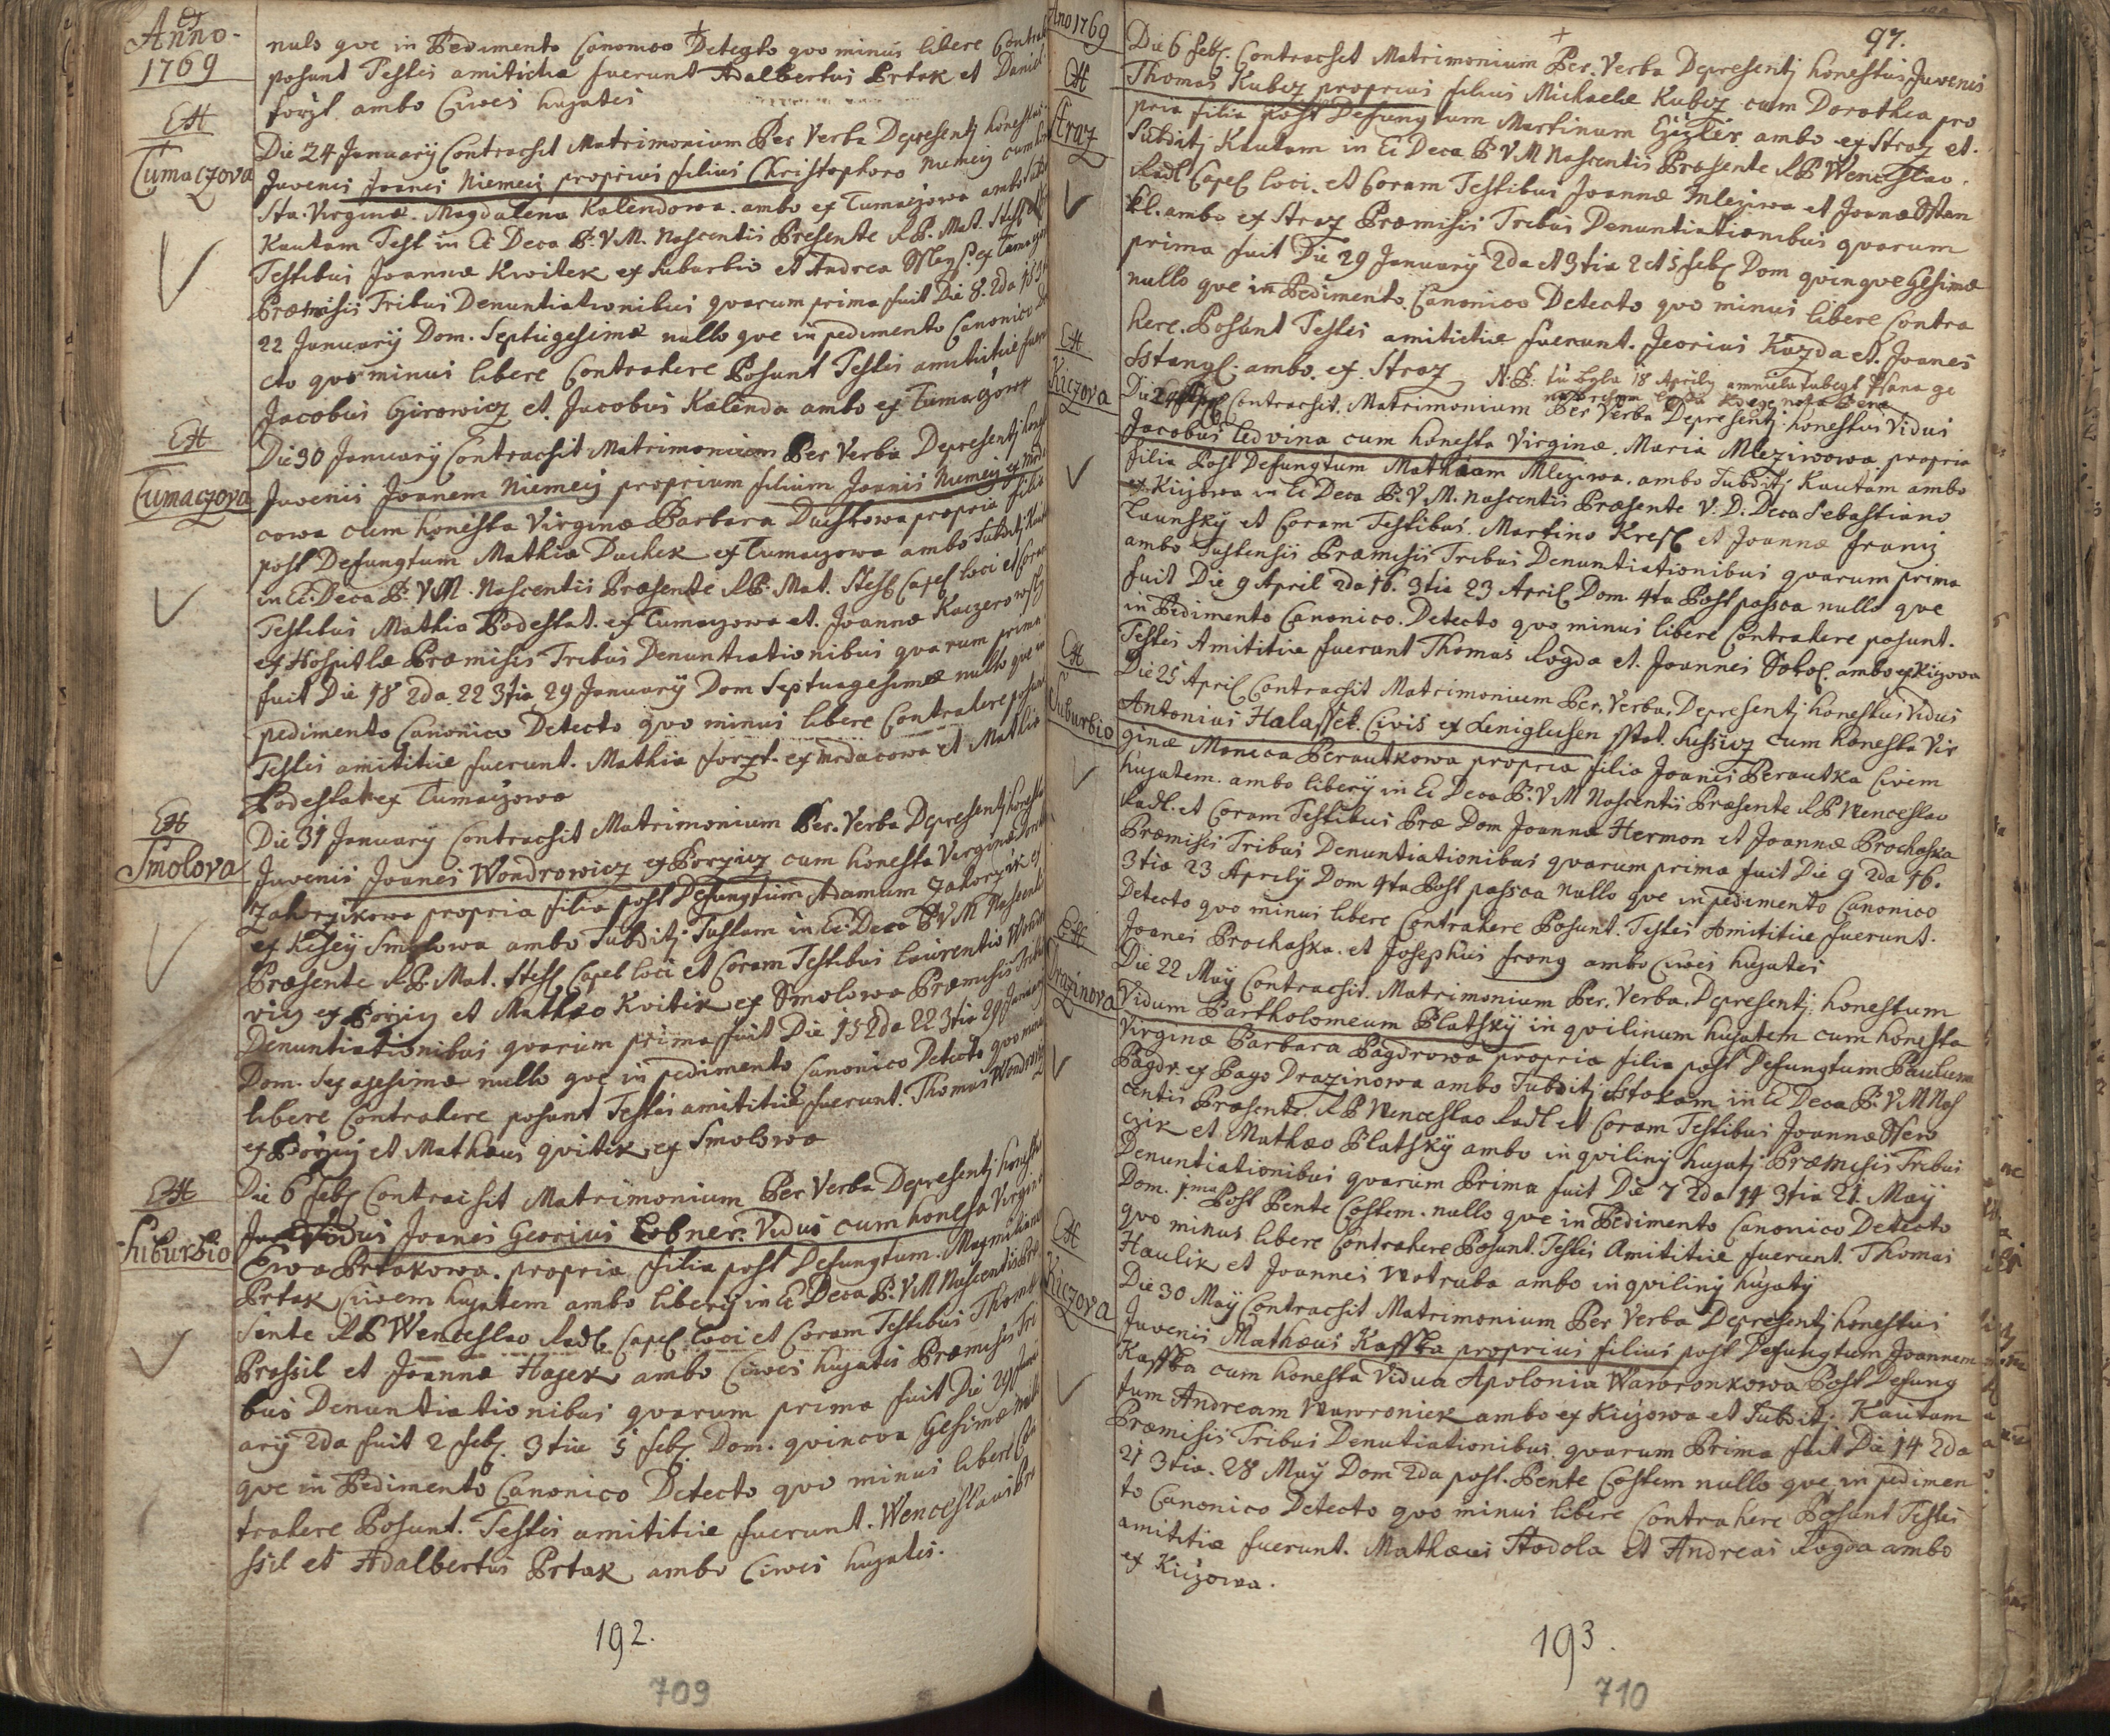 Anno
1769
nulo qve in Pedimento Canonico Detegto qvo minus libere Contra
posunt Testes amititia fuerunt Adalbertus Prtak et Daniel
forst ambo Cives hujates
Tumaczova
Die 24 January Contracsit Matrimonium Per Verba Depresentj honestus
Juvenis Joanes Niemeiz proprius filius Christophoro Niemeiz cum
Sta. Virginæ. Magdalena Kalendowa. ambo ex Tumaczowa ambo
Kautam Test in Ec Deca B. V. M. Nascentis Presente R.P. Mat. Stess
Testibus Joannæ Kwitek ex Suburbio et Andrea ex
Præmisis Tribus Denuntiationibus qvarum prima fuit Die 8. 2da 15
22 January Dom. Septugesimæ nullo qve in pedimento Canonico De
cto qvo minus libere Contrahere Posunt Testes amititiæ fuer
Jacobus Girowicz et. Jacobus Kalenda ambo ex Tumaczowa
Tumaczova
Die 30 January Contracsit Matrimonium Per Verba Depresentj hone
Juvenis Joanem Niemeiz proprium filium Joanis Niemeiz ex Mrda
cowa cum honesta Virginæ Barbara Duchkowa propria filia
post Defungtum Mathiæ Duchek ex Tumaczowa ambo Subditj Kau
in Ec. Deca B. V. M. Nascentis Præsente R.P. Mat. Stess Capel loci et Coram
Testibus Mathia Podestat. ex Tumaczowa et. Joannæ Kaczerowsky
ex Hospitlæ Præmisis Tribus Denuntiationibus qvarum prima
fuit Die 18 2da 22 3tia 29 January Dom Septuagesimæ nullo qve in
pedimento Canonico Detecto qvo minus libere Contrahere posunt
Testes amititiæ fuerunt. Mathia forst. ex Mrdacowa et Mathia
Podestat ex Tumaczowa
Smolova
Die 31 January Contracsit Matrimonium Per. Verba Depresentj honestus
Juvenis Joanes Wondrowicz ex Porziicz cum honesta Virginæ
Zahorzikowa propria filia post Defungtum Adamum Zahorzik ex
ex Smolowa ambo Subditj Tustam in Ec: Deca B V M Nascenti
Præsente R.P. Mat. Stess Capel loci et Coram Testibus laurentio Wond
vicz ex Porziicz et Mathæo Kvitek ex Smolowa Præmisis Tribus
Denuntiationibus qvarum prima fuit Die 15 2da 22 3tia 29 January
Dom. Sexagesimæ nullo qve in pedimento Canonico Detecto qvo minus
libere Contrahere posunt Testes amititiæ fuerunt. Thomas Wondrowicz
ex Porziicz et Mathæus qvitek ex Smolowa
Suburbio
Die 6 Feb. Contracsit Matrimonium Per Verba Depresentj honestus
Vidus Joanes Georius Lobner. Vidus cum honesta Virgine
Ewa Prtakowa. propria filia post Defungtum. Maxmiliani
Prtak Civem hujatem ambo libery in Ec Deca B: V M Nascentis Præ
sente R P Wenceslao Radl Capel loci et Coram Testibus Thoma
Prossil et Joannæ Hajek ambo Cives hujates Præmisis Tri
bus Denuntiationibus qvarum prima fuit Die 29 Janu
ary 2da fuit 2 feb. 3tia 5 feb. Dom. qvincva Gesimæ null
qve in Pedimento Canonico Detecto qvo minus libere Con
trahere Posunt. Testes amititiæ fuerunt. Wenceslaus Pro
ssil et Adalbertus Prtak ambo Cives hujates.
192.
709
Ano 1769
97.
Straz
Die 6 feb. Contracset Matrimonium Per. Verba Depresentj honestus Juvenis
Thomas Kubez proprius filius Michaele Kubez cum Dorothea pro
pria filia Post Defungtum Martinum Gizler. ambo ex Straz et.
Subditj Kautam in Ec Deca B V M Nascentis Præsente R P Wenceslao
Radl Capel loci. et Coram Testibus Joannæ Mleziwa et Joanæ Sstan
kl. ambo ex Straz Præmisis Tribus Denuntiationibus qvarum
prima fuit Die 29 January 2da et 3tia 2 et 5 feb. Dom qvinqve Gesimæ
nullo qve in Pedimento. Canonico Detecto qvo minus libere Contra
here. Posunt Testes amititiæ fuerunt. Jeorius Kuzda et. Joanes
Sstangl. ambo. ex. Straz N:B: tu byla 18 Aprily
Kiczova
Die 24 Apl Contracsit. Matrimonium Per Verba Depresentj honestus Vidus
Jacobus ledvina cum honesta Virginæ. Maria Mleziwowa propria
filia Post Defungtum Mathæam Mleziwa. ambo Subditj Kautam ambo
ex Kiczowa in Ec Deca B: V M. Nascentis Præsente V. D. Deca Sebastiano
Launsky et Coram Testibus. Martino Kresl et Joannæ franz
ambo Tustensis Præmisis Tribus Denuntiationibus qvarum prima
fuit Die 9 April 2da 16. 3tia 23 April Dom. 4ta Post pasca nullo qve
in Pedimento Canonico. Detecto qvo minus libere Contrahere posunt.
Testes Amititiæ fuerunt Thomas Rogda et. Joannes Sokol. ambo ex Kiczowa
Suburbio
Die 25 April Contracsit Matrimonium Per. Verba. Depresentj honestus Vidus
Antonius Halassek. Civis ex Seniglusen Stat. Sussicz cum honesta Vir
ginæ Monica Berautkowa propria filia Joanis Berautka Civem
hujatem. ambo libery in Ec Deca B: V M Nascentis Præsente R P Wenceslao
Radl. et Coram Testibus Præ Dom Joannæ Hermon et Joannæ Prochaska
Præmisis Tribus Denuntiationibus qvarum prima fuit Die 9 2da 16.
3tia 23 Aprily Dom 4ta Post pasca Nullo qve in pedimento Canonico
Detecto qvo minus libere Contrahere Posunt. Testes Amititiæ fuerunt.
Joanes Prochaska. et Josephus frong ambo Cives hujates
Drazinova
Die 22 May Contracsit. Matrimonium Per. Verba. Depresentj honestum
Vidum Bartholomeum Blatsky in qvilinum hujatem cum honesta
Virginæ Barbara Bagdrowa propria filia post Defungtum Paulum
Bagdr. ex Pago Drazinowa ambo Subditj Sstokam in Ec Deca B: V M Nas
centis Præsente. R P Wenceslao Radl et Coram Testibus Joannæ
czik et Mathæo Blatsky ambo in qviliny hujatj Præmisis Tribus
Denuntiationibus qvarum Prima fuit Die 7 2da 14 3tia 21. May
Dom. 1ma Post Pente Costem. nullo qve in Pedimento Canonico Detecto
qvo minus. libere Contrahere Posunt. Testes Amititiæ fuerunt. Thomas
Haulik et Joannes Wotruba ambo in qviliny hujaty
Kiczova
Die 30 May Contracsit Matrimonium Per Verba Depresentj honestus
Juvenis Mathæus Kaffka proprius filius post Defungtum Joannem
Kaffka cum honesta Vidua Apolonia Wawronkowa Post Defung
tum Andream Wawroniek ambo ex Kiczowa et Subditj. Kautam
Præmisis Tribus Denutiationibus qvarum Prima fuit Die 14 2da
21 3tia. 28 May Dom 2da post. Pente Costem nullo qve in pedimen
to Canonico Detecto qvo minus libere Contrahere Posunt Testes
amititiæ fuerunt. Mathæus Stodola et Andreas Rogda ambo
ex Kiczowa.
193.
710